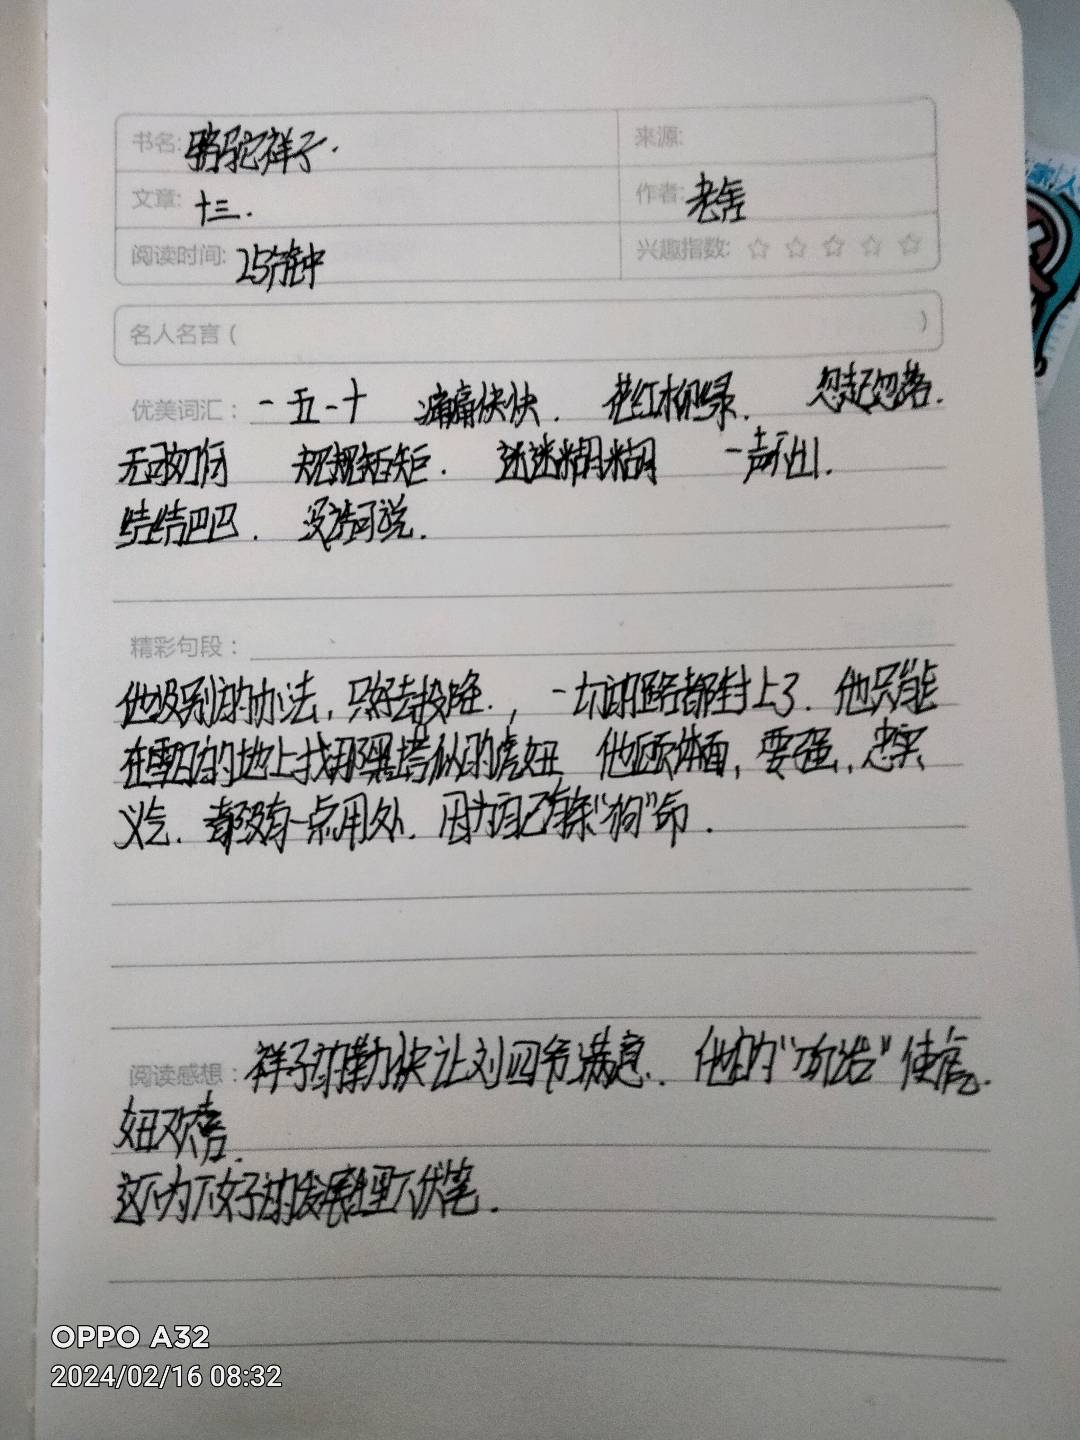 书名: 骆驼祥子.
来源:
文章: 十三.
作者: 老舍
阅读时间: 25分钟
兴趣指数: ☆ ☆ ☆ ☆ ☆
名人名言 ( )
优美词汇: 一五一十 痛痛快快. 花红柳绿. 忽起忽落.
无可如何 规规矩矩. 迷迷糊糊 一声不出.
结结巴巴. 没话可说.
精彩句段:
他没别的办法, 只好去投降., 一切的路都封上了. 他只能
在雪白的地上找那黑塔似的虎妞 他顾体面, 要强, 忠实
义气. 都没有一点用处. 因为自己有条"狗"命.
阅读感想: 祥子的勤快让刘四爷满意. 他的 使虎
妞欢喜.
为 的发展埋下伏笔.
OPPO A32
2024/02/16 08:32